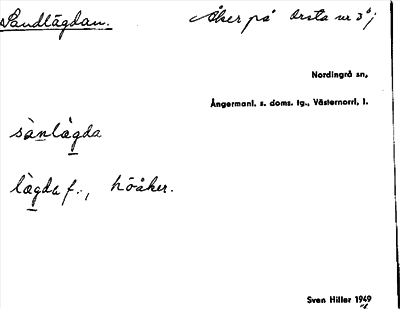 Sandlägdan. Åker på Orsta nr 3⁶;
Nordingrå sn,
Ångermanl. s. doms. tg., Västernorrl, l.
sànlàgda
làgda f., höåker.
Sven Hiller 1949